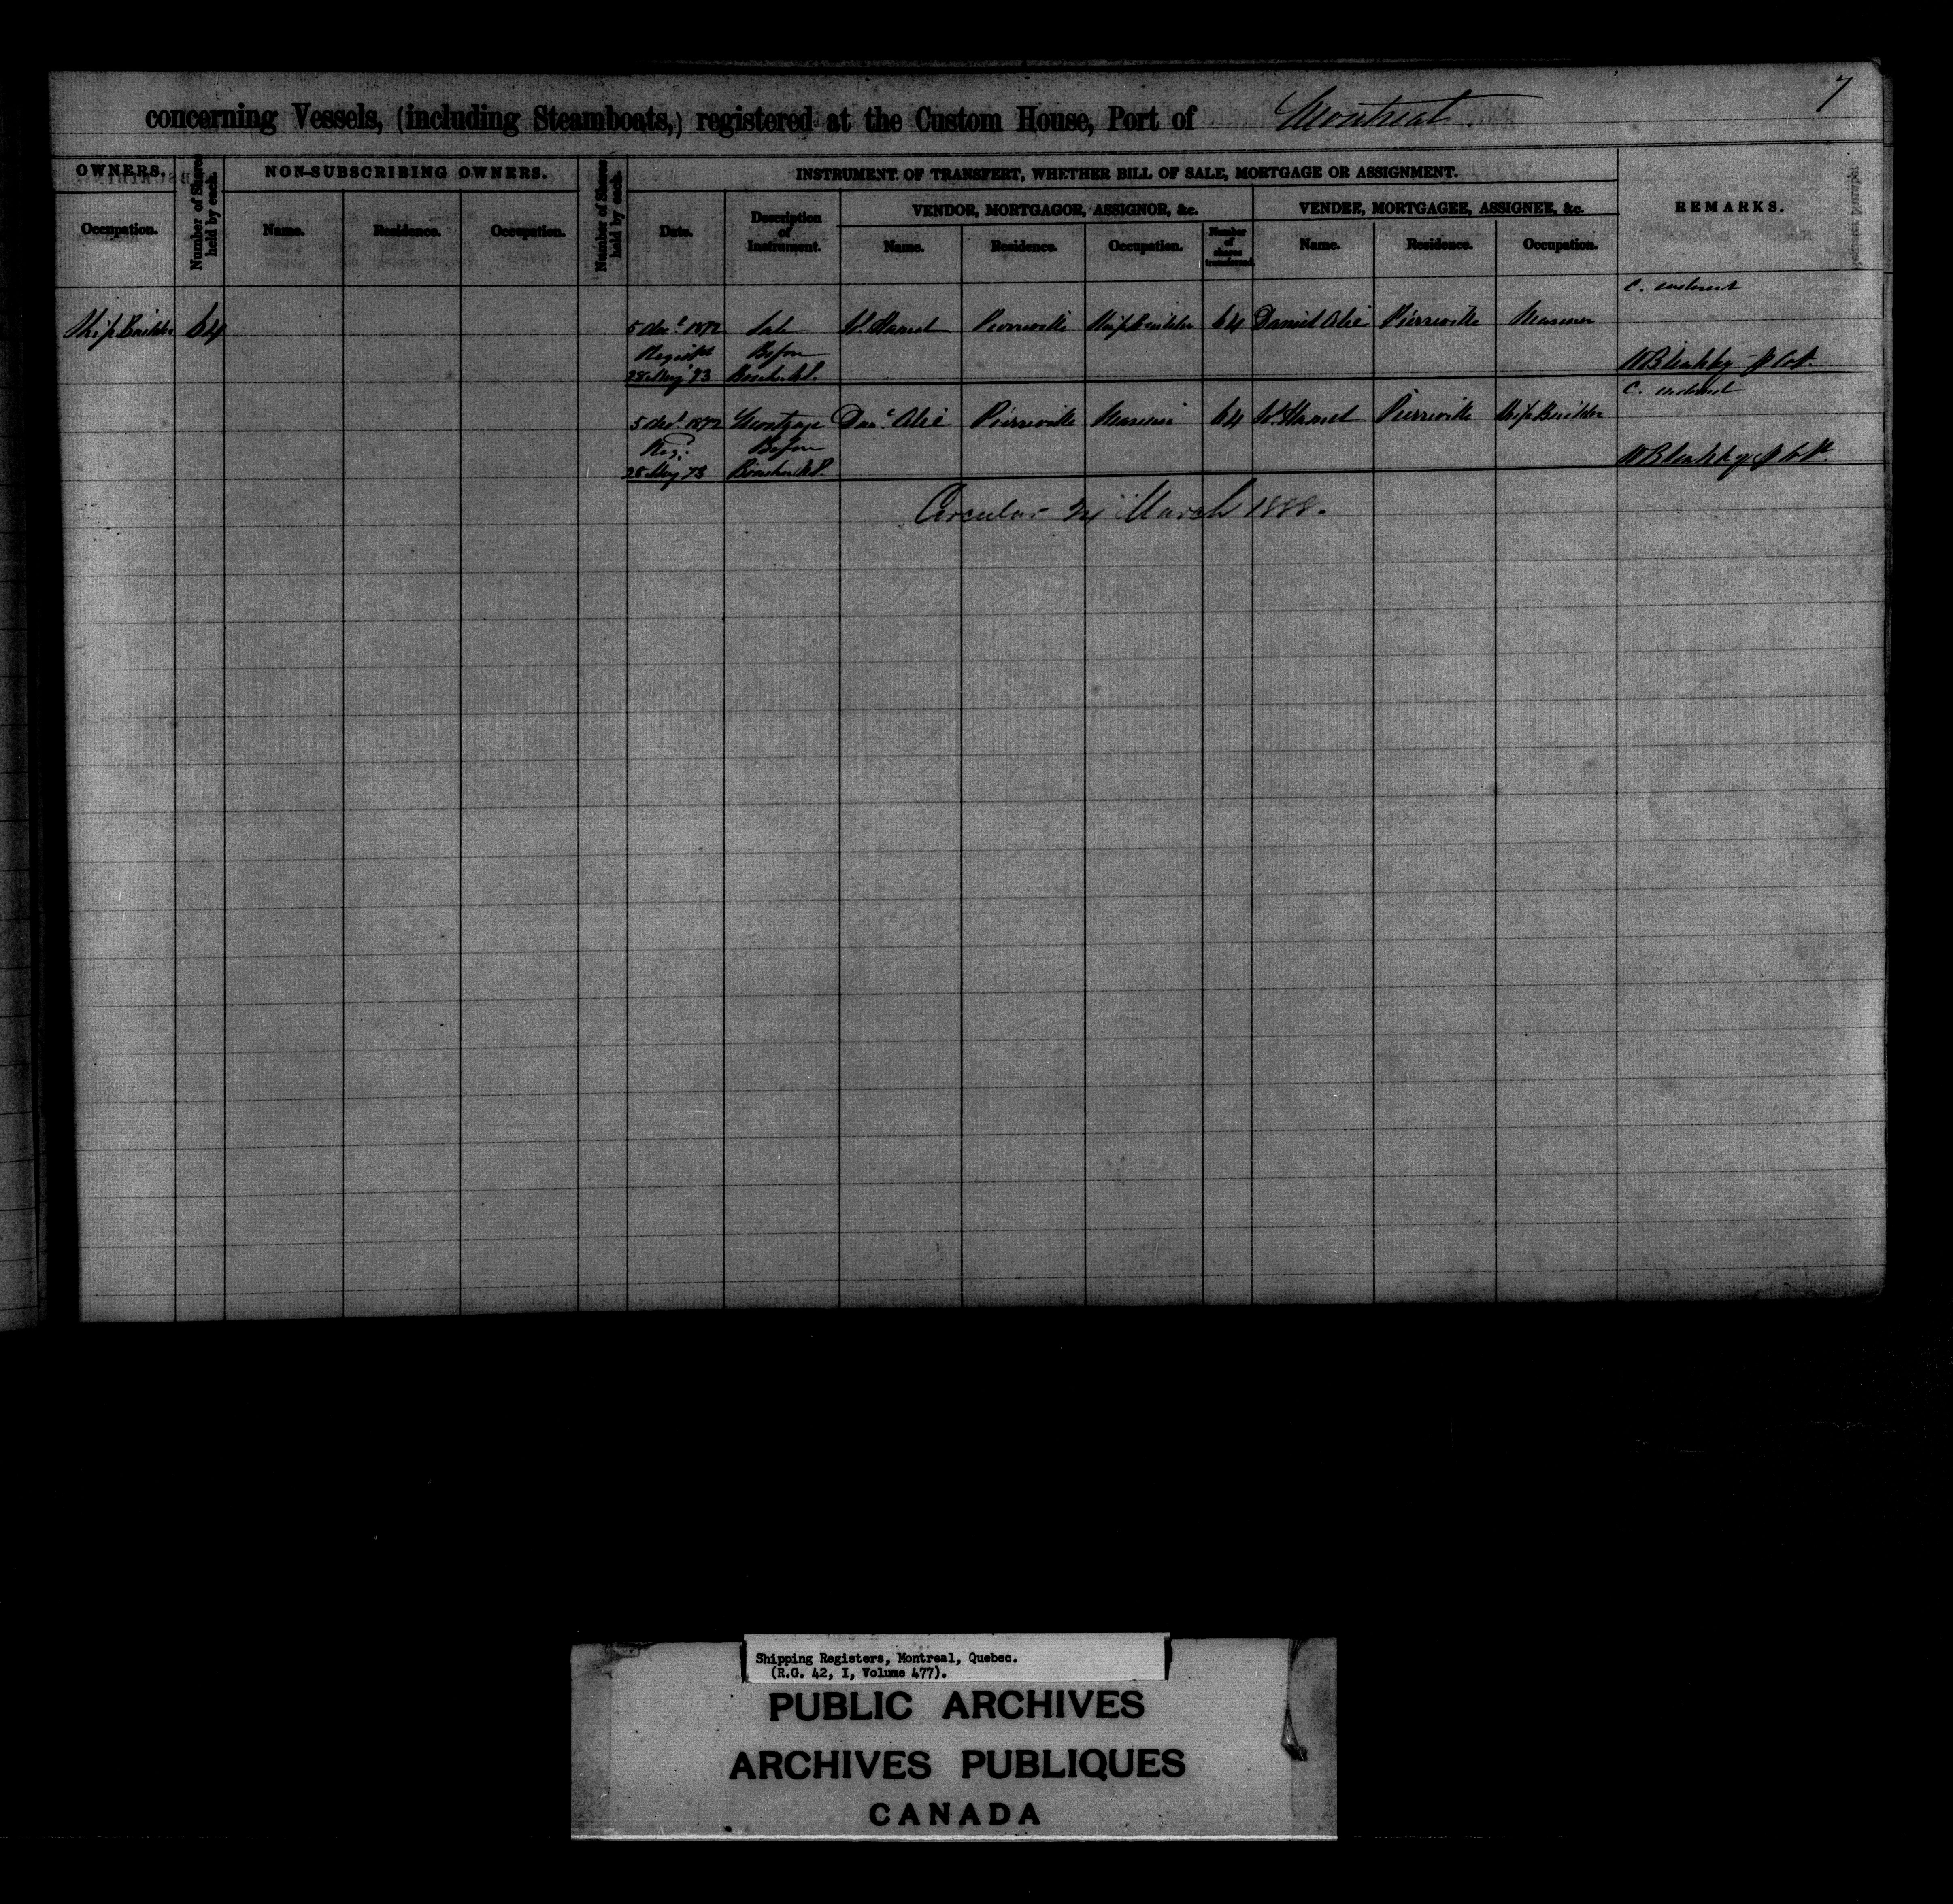 7
concerning Vessels, (including Steamboats,) registered at the Custom House, Port of Montreal.
OWNERS. Number of Shares held by each. NON-SUBSCRIBING OWNERS. Number of Shares held by each. INSTRUMENT OF TRANSFERT, WHETHER BILL OF SALE, MORTGAGE OR ASSIGNMENT. REMARKS.
VENDOR, MORTGAGOR, ASSIGNOR, &c. VENDEE, MORTGAGEE, ASSIGNEE, &c.
Occupation. Name. Residence. Occupation. Date. Description of Instrument. Name. Residence. Occupation. Number of shares transferred. Name. Residence. Occupation.
Ship Builder 64 1872 Sale Hamel Pierreville Ship Builder 64 Daniel Alie Pierreville Mariner
Before
5 1872 Mortgage Alie Pierreville Mariner 64 Hamel Pierreville Ship Builder
Before
Circular March 1888.
Shipping Registers, Montreal, Quebec.
(R.G. 42, I, Volume 477).
PUBLIC ARCHIVES
ARCHIVES PUBLIQUES
CANADA